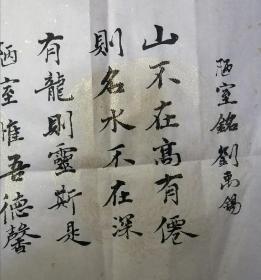 陋室銘劉禹錫
山不在高有僊
則名水不在深
有龍則靈斯是
陋室惟吾德馨